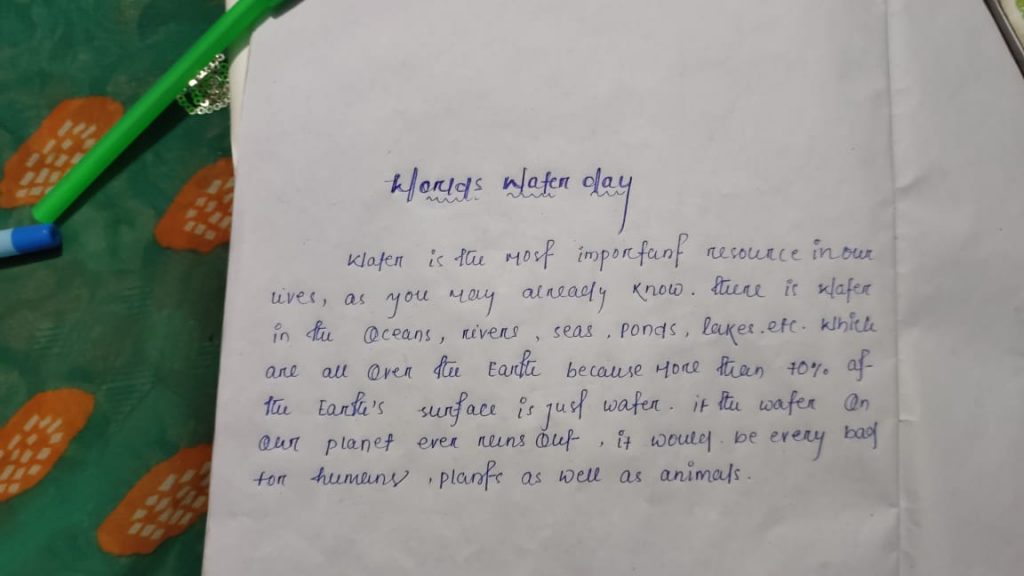 Worlds Water day
Water is the Most important resource in our
lives, as you may already know. there is Water
in the Oceans, rivers, seas, ponds, lakes.etc. Which
are all Over the Earth because More than 70% of
the Earth's surface is just water. if the water On
Our planet ever runs Out, it would be every bad
for humans, plants as well as animals.